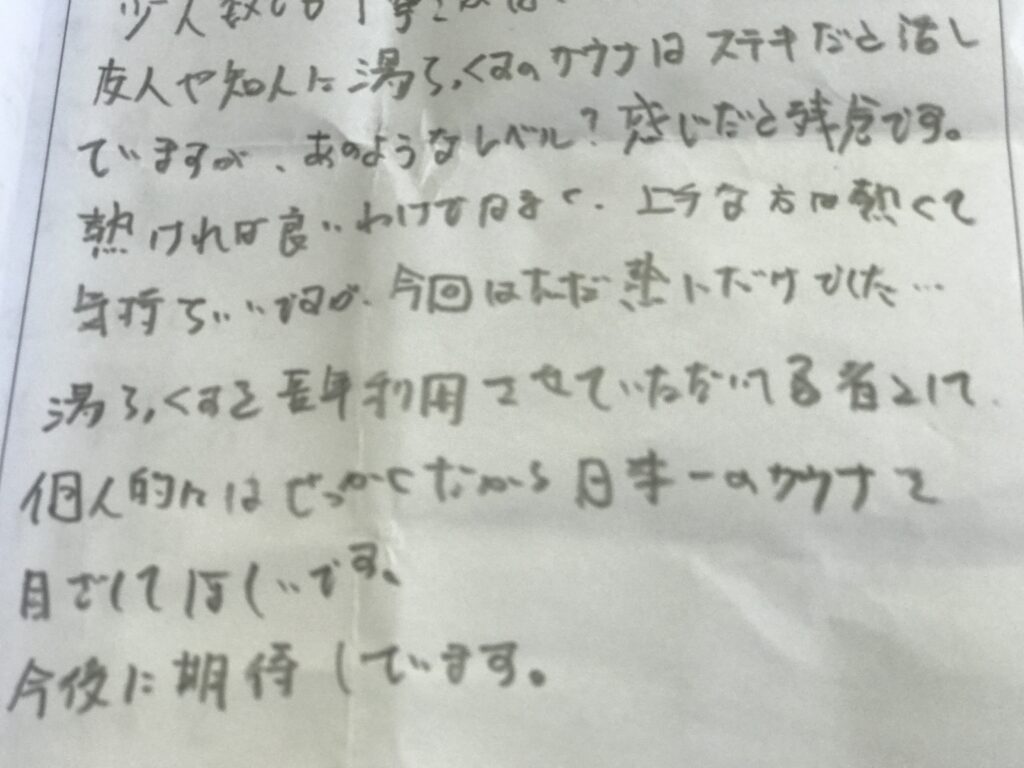 少人数でも
友人や知人に湯らっくすのサウナはステキだと話し
ていますが、あのようなレベル？感じだと残念です。
熱ければ良いわけではなく、上手な方は熱くて
気持ちいいですが、今回はただ熱いだけでした…
湯らっくすを長年利用させていただいてる者として
個人的にはせっかくだから日本一のサウナを
目ざしてほしいです。
今後に期待しています。